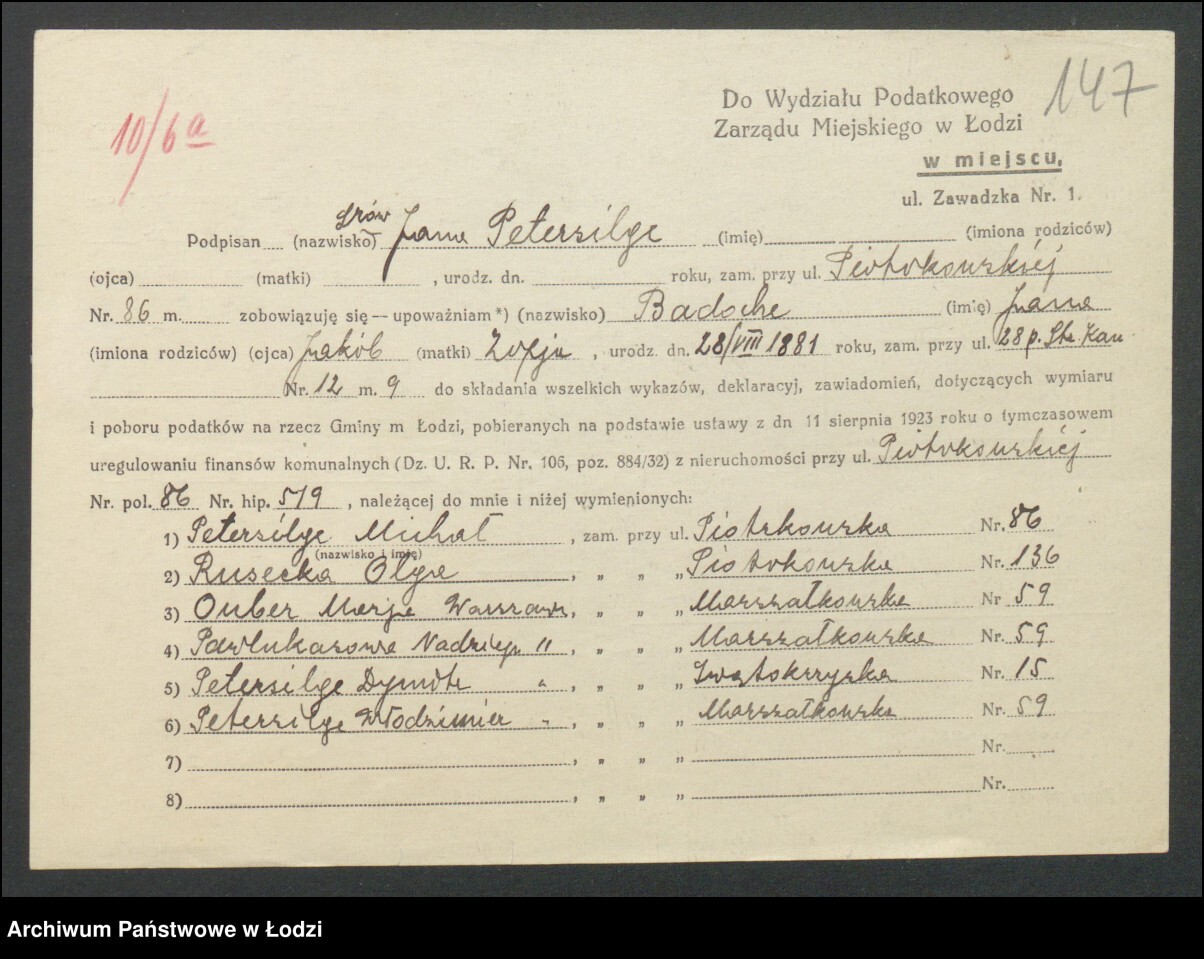 147
10/6a
Do Wydziału Podatkowego
Zarządu Miejskiego w Łodzi
w miejscu,
ul. Zawadzka Nr. 1.
Podpisan (nazwisko) Jana Petersilge (imię) (imiona rodziców)
(ojca) (matki) , urodz. dn. roku, zam. przy ul. Piotrkowskiej
Nr. 86 m. zobowiązuję się — upoważniam *) (nazwisko) Badoche (imię) Jana
(imiona rodziców) (ojca) Jakób (matki) Zofja , urodz. dn. 28/VIII 1881 roku, zam. przy ul. 28 p. Str. Kan
Nr. 12 m. 9 do składania wszelkich wykazów, deklaracyj, zawiadomień, dotyczących wymiaru
i poboru podatków na rzecz Gminy m Łodzi, pobieranych na podstawie ustawy z dn 11 sierpnia 1923 roku o tymczasowem
uregulowaniu finansów komunalnych (Dz. U. R. P. Nr. 106, poz. 884/32) z nieruchomości przy ul. Piotrkowskiej
Nr. pol. 86 Nr. hip. 519 , należącej do mnie i niżej wymienionych:
1) Petersilge Michał , zam. przy ul. Piotrkowska Nr. 86
(nazwisko i imię)
2) Rusecka Olga , „ „ „ Piotrkowska Nr. 136
3) Ouber Marja Warszawa, „ „ „ Marszałkowska Nr 59
4) Pawlukasowa Nadzieja " , „ „ „ Marszałkowska Nr. 59
5) Petersilge " , „ „ „ Swętokrzyska Nr. 15
6) Petersilge Włodzimier " , „ „ „ Marszałkowska Nr. 59
7) , „ „ „ Nr.
8) , „ „ „ Nr.
Archiwum Państwowe w Łodzi